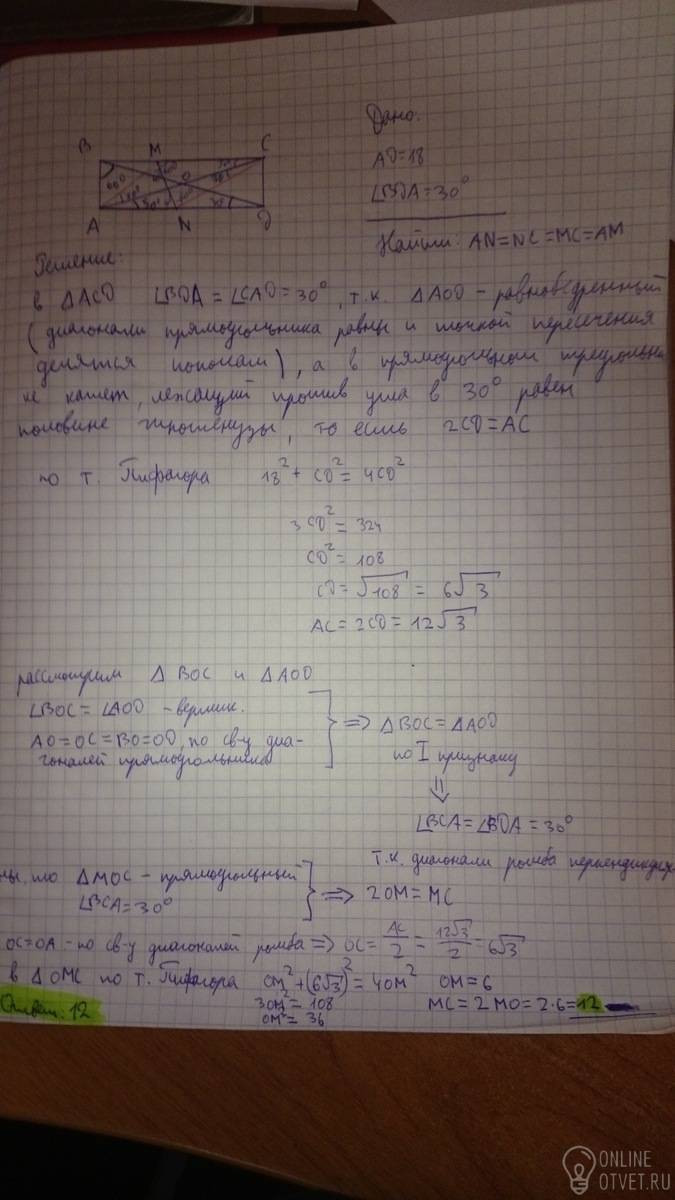 Дано:
B M C
AD=18
60° 30° 30°
O
∠BDA=30°
30° 30°
A N D
Найти: AN=NC=MC=AM
Решение:
в △ACD ∠BDA=∠CAD=30°, т.к. △AOD - равнобедренный
(диагонали прямоугольника равны и точкой пересечения
делятся пополам), а в прямоугольном треугольни
ке катет, лежащий против угла в 30° равен
половине гипотенузы, то есть 2CD=AC
по т. Пифагора 18²+CD²=4CD²
3CD²=324
CD²=108
CD=√108=6√3
AC=2CD=12√3
рассмотрим △BOC и △AOD
∠BOC=∠AOD - вертик.
AO=OC=BO=OD, по св-у диа-
гоналей прямоугольника
⇒ △BOC=△AOD
по I признаку
⇓
∠BCA=∠BDA=30°
т.к. диагонали ромба перпендикуляр
ны, то △MOC - прямоугольный
∠BCA=30°
⇒ 2OM=MC
OC=OA - по св-у диагоналей ромба ⇒ OC=AC/2=12√3/2=6√3
в △OMC по т. Пифагора OM²+(6√3)²=4OM² OM=6
3OM²=108 MC=2MO=2·6=12
OM²=36
Ответ: 12
ONLINE
OTVET.RU